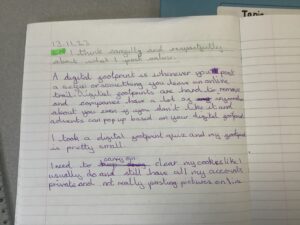 Topic
13.11.23
I think carefully and respectfully
about what I post online.
A digital footprint is whenever you post
a selfie or something you leave an online
trail. Digital footprints are hard to remove
and companies have a lot of
about you even if you don't like it and
adverts can pop up based on your digital footprint
I took a digital footprint quiz and my footprint
is pretty small.
I need to carry on clear my cookies like I
usually do and still have all my accounts
private and not really posting pictures online